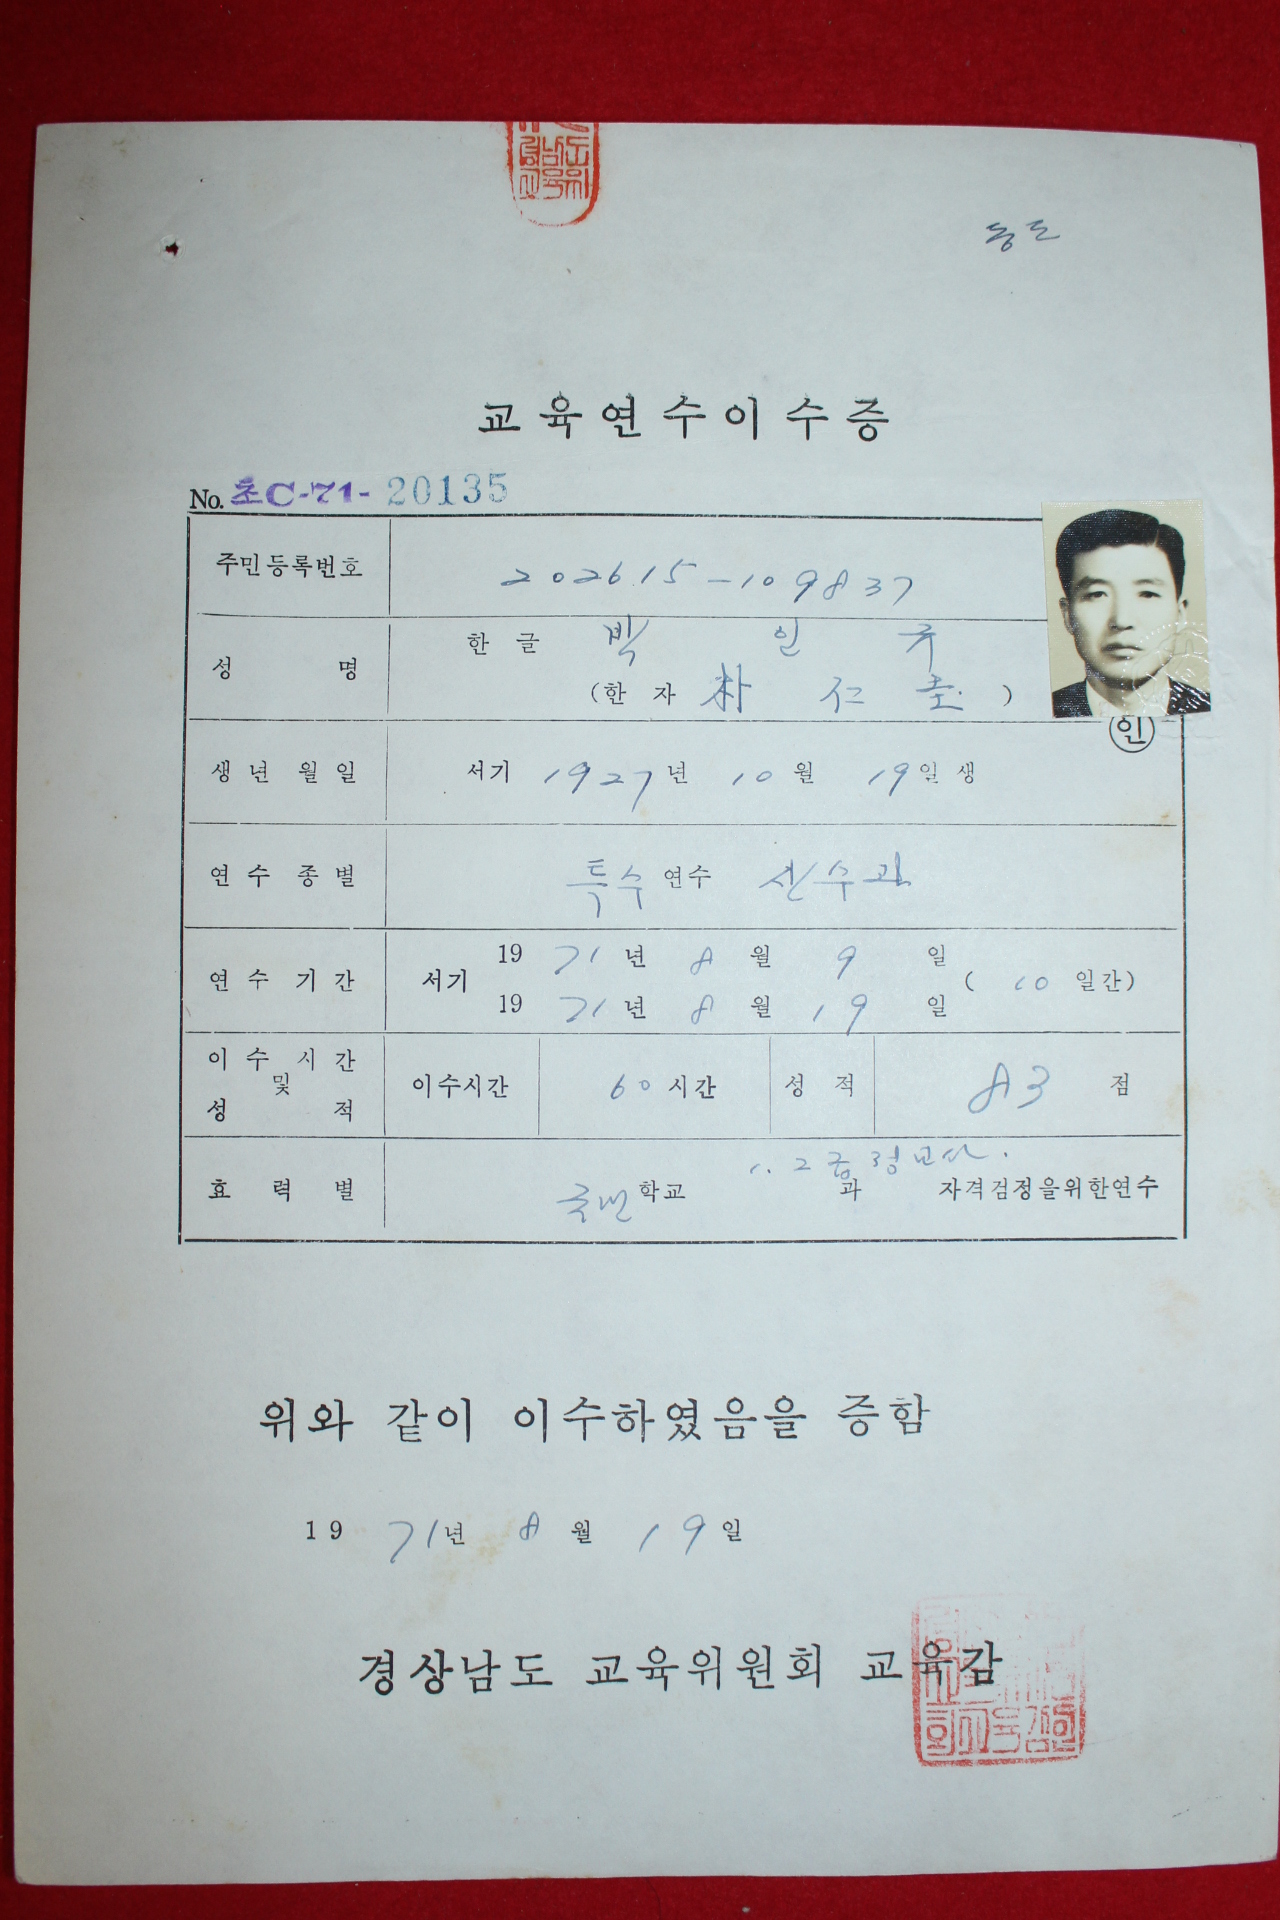 교육연수이수증
No. 초C-71- 20135
주민등록번호 202615-109837
성 명 한글 박 인 규
(한자 朴 仁 圭 )
인
생년월일 서기 1927년 10월 19일생
연수종별 특수 연수 산수과
연수기간 서기 19 71년 8월 9일
19 71년 8월 19일 ( 10 일간)
이수시간 및 성적 이수시간 60 시간 성적 83 점
1. 2급정교사.
효력별 국민 학교 과 자격검정을위한연수
위와 같이 이수하였음을 증함
19 71년 8월 19일
경상남도 교육위원회 교육감